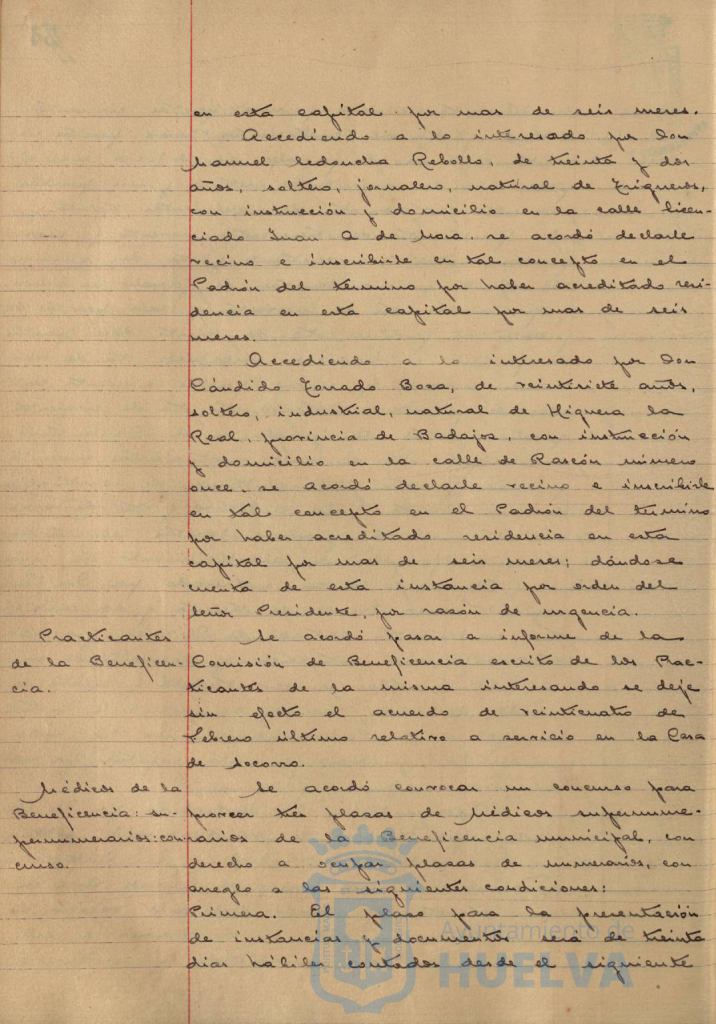 en esta capital por mas de seis meses.
Accediendo a lo interesado por Don
Manuel Ledoncha Rebollo, de treinta y dos
años, soltero, jornalero, natural de Trigueros,
con instrucción y domicilio en la calle Licen-
ciado Juan A de Mora. se acordó declarle
vecino e inscribirle en tal concepto en el
Padrón del término por haber acreditado resi-
dencia en esta capital por mas de seis
meses.
Accediendo a lo interesado por Don
Cándido Torrado Boza, de veintisiete años,
soltero, industrial, natural de Higuera la
Real, provincia de Badajoz, con instrucción
y domicilio en la calle de Rascón número
once. se acordó declarle vecino e inscribirle
en tal concepto en el Padrón del término
por haber acreditado residencia en esta
capital por mas de seis meses; dándose
cuenta de esta instancia por orden del
Señor Presidente, por razón de urgencia.
Practicantes
de la Beneficen-
cia.
Se acordó pasar a informe de la
Comisión de Beneficencia escrito de los Prac-
ticantes de la misma interesando se deje
sin efecto el acuerdo de veinticuatro de
Febrero último relativo a servicio en la Casa
de Socorro.
Médicos de la
Beneficencia: su-
pernumerarios: con-
curso.
Se acordó convocar un concurso para
proveer tres plazas de Médicos supernume-
rarios de la Beneficencia municipal, con
derecho a ocupar plazas de numerarios, con
arreglo a las siguientes condiciones:
Primera. El plazo para la presentación
de instancias y documentos será de treinta
días hábiles contados desde el siguiente
Ayuntamiento de
HUELVA